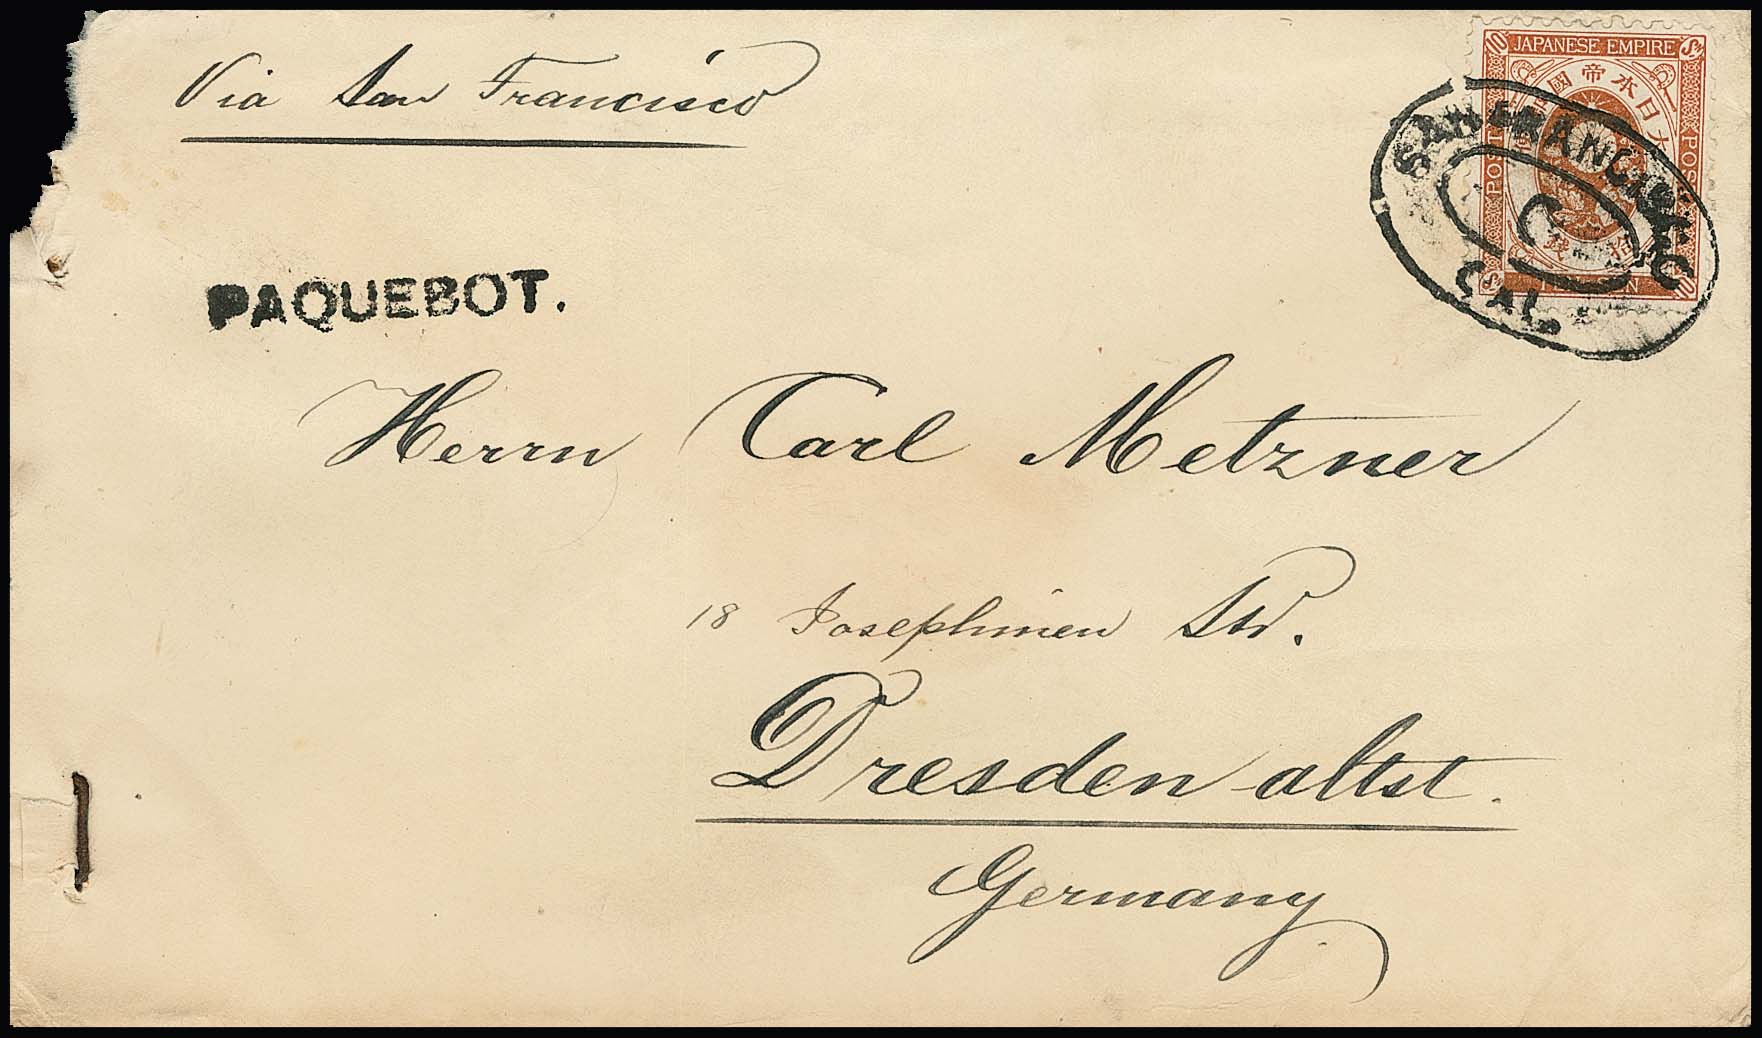 Via San Francisco
10 JAPANESE EMPIRE Sn
大日本帝國
POST
POS
Sn 10
SAN FRANCISCO
C
CAL.
PAQUEBOT.
Herrn Carl Metzner
18 Josephinen Str.
Dresden altst.
Germany